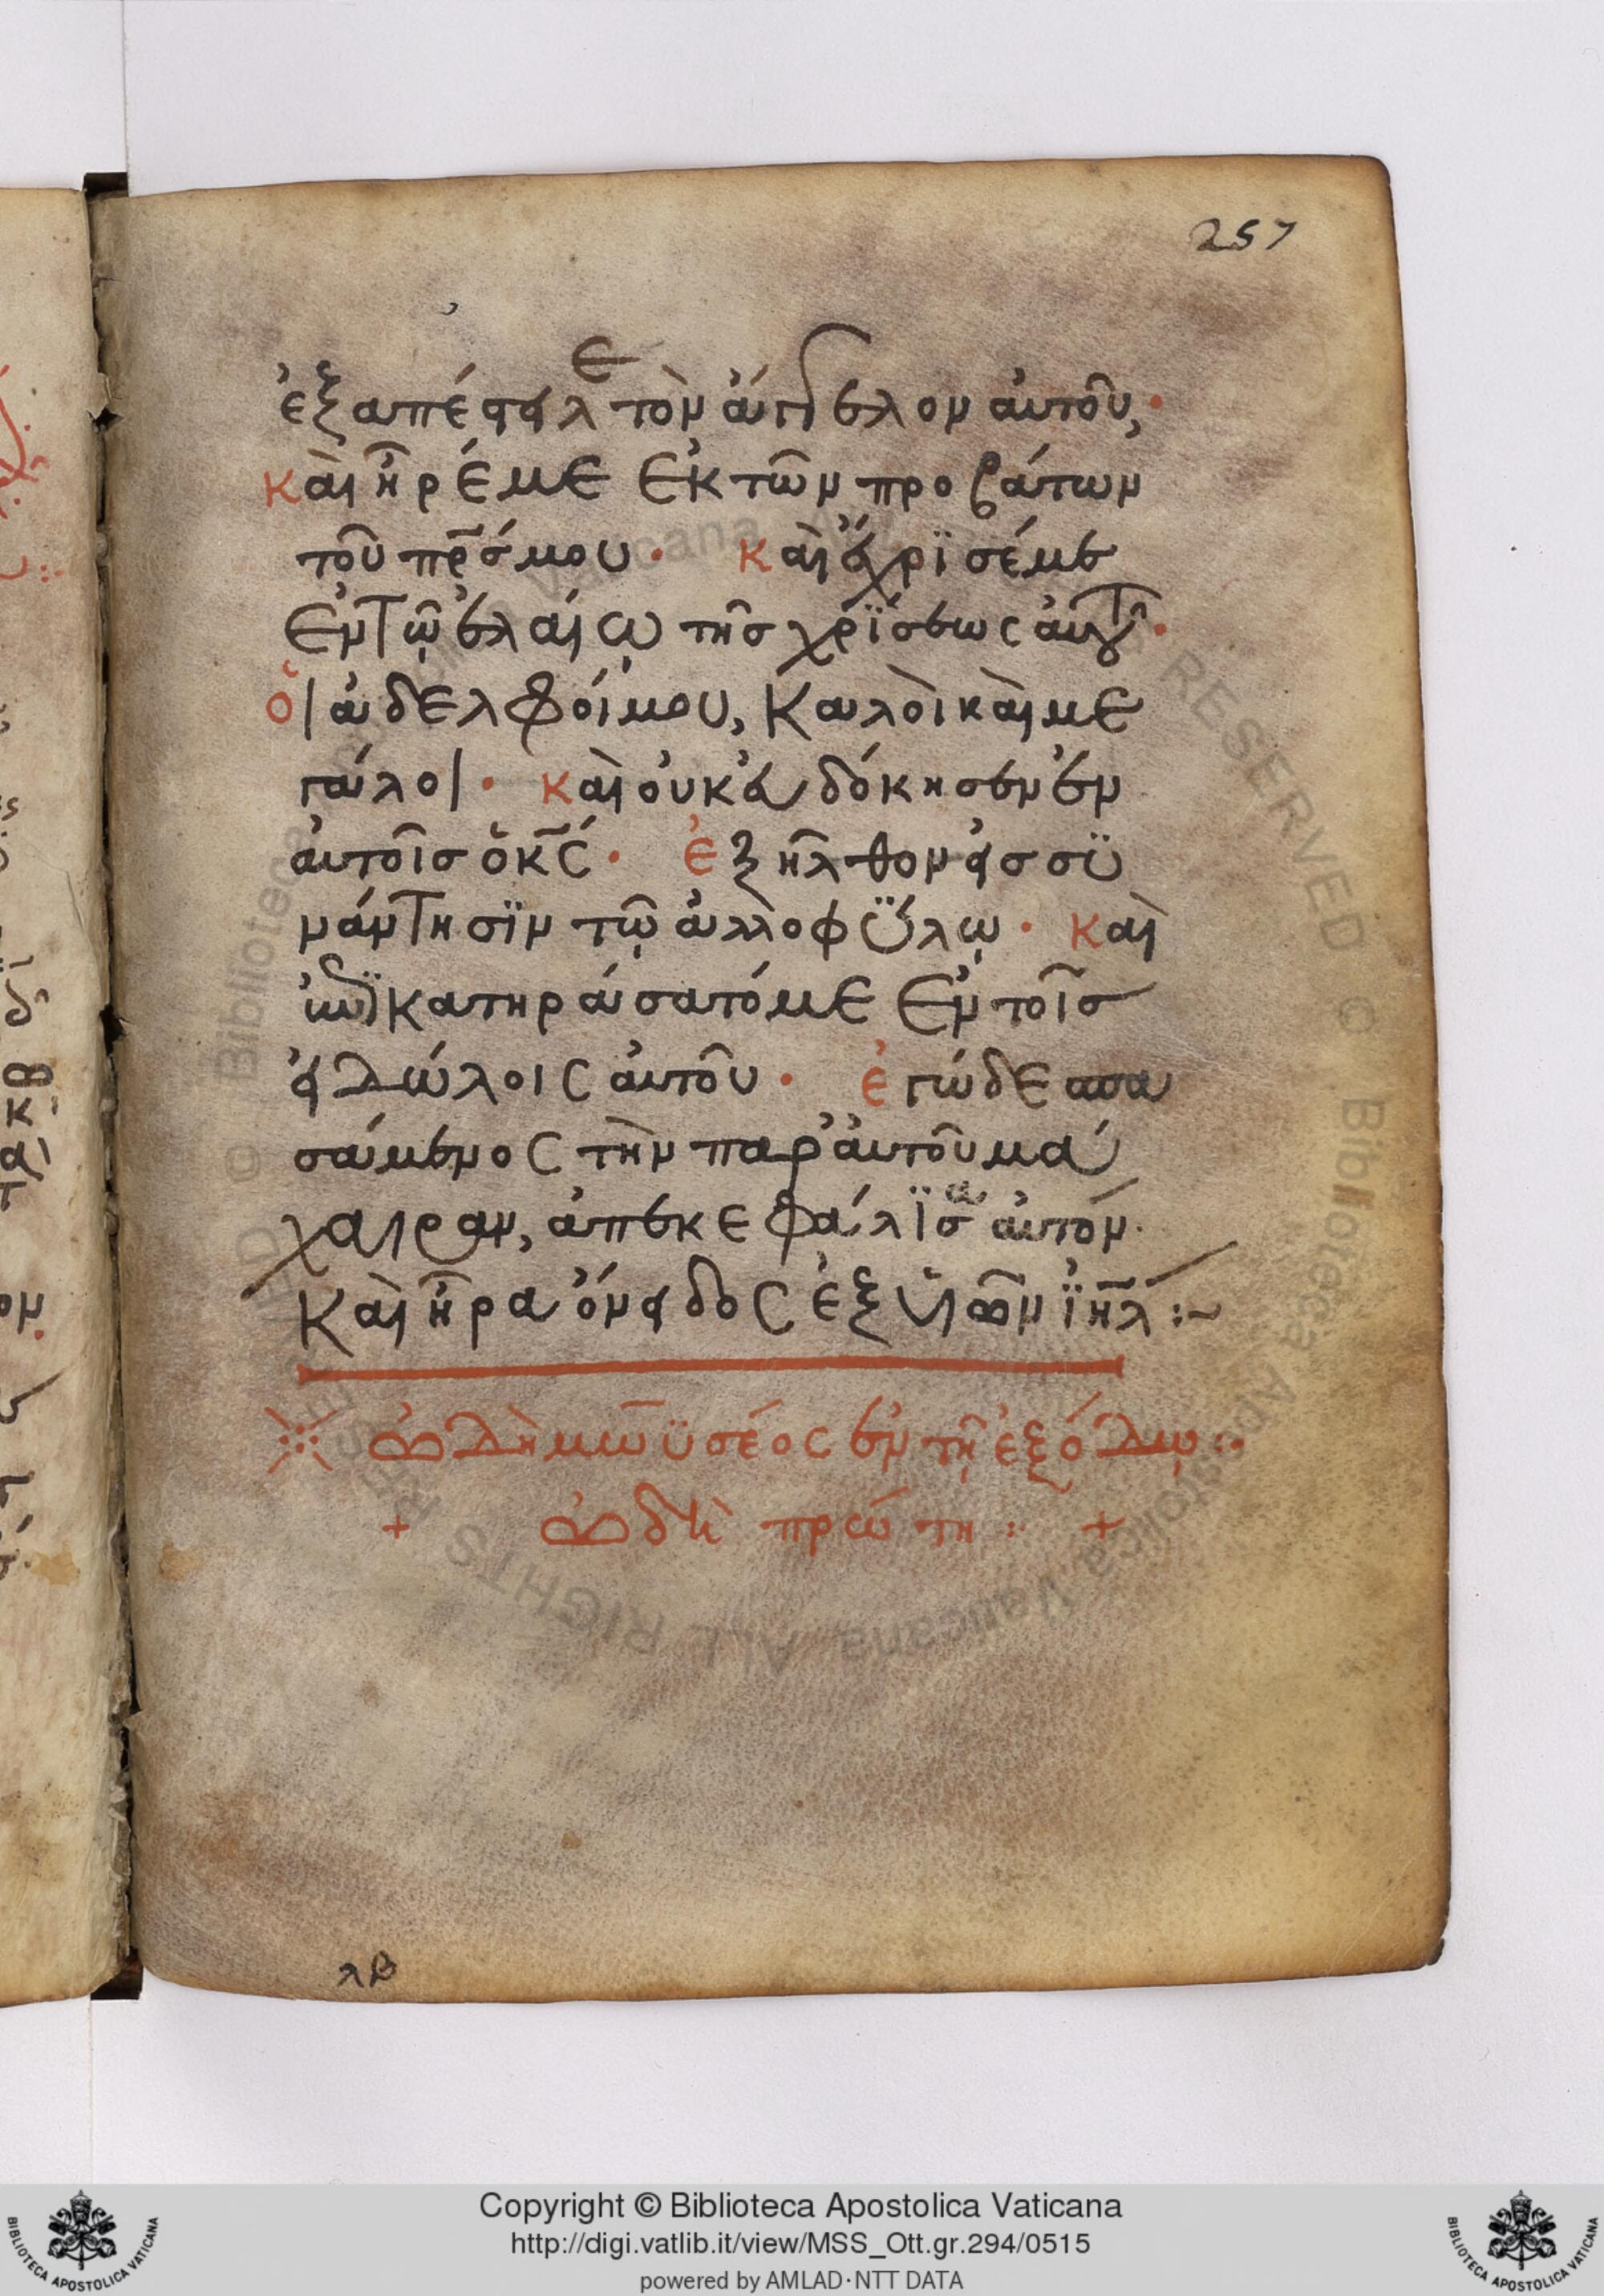 257
ἐξαπέστειλε τὸν ἄγγελον αὐτοῦ,·
καὶ ἦρέ με ἐκ τῶν προβάτων
τοῦ πρ̅ς μου· καὶ ἔχρϊσέ με
ἐν τῷ ἐλαίῳ τῆς χρϊσεως αὐτοῦ·
ὁι ἀδελφοί μου, καλοὶ καὶ με
γάλοι· καὶ οὐκ εὐδόκησεν ἐν
αὐτοῖς ὁ κ̅ς· ἐξῆλθον εἰς συ
νάντησϊν τῷ ἀλλοφύλῳ· καὶ
ἐπϊκατηράσατό με ἐν τοῖς
εἰδώλοις αὐτοῦ· ἐγὼ δὲ σπα
σάμενος τὴν παρ' αὐτοῦ μά
χαιραν, ἀπεκεφάλϊσα αὐτόν·
καὶ ἦρα ὄνειδος ἐξ υἱῶν ϊη̅λ :~
ὠδὴ μωϋσέος ἐν τῇ ἐξόδῳ :·
+ ὠδὴ πρώτη : +
λβ
Copyright © Biblioteca Apostolica Vaticana
http://digi.vatlib.it/view/MSS_Ott.gr.294/0515
powered by AMLAD·NTT DATA
BIBLIOTECA APOSTOLICA VATICANA
BIBLIOTECA APOSTOLICA VATICANA